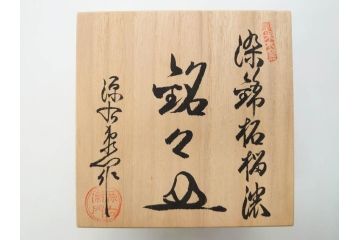 染錦柘榴濃
銘々皿
源右衛門作